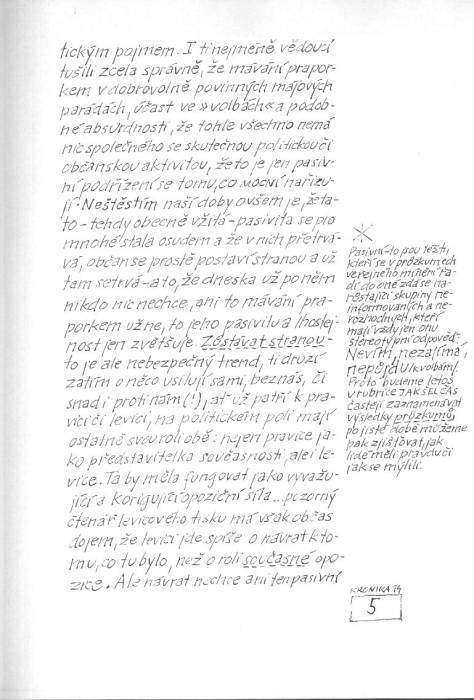 tickým pojmem. I ti nejméně vědoucí
tušili zcela správně, že mávání prapor-
kem v dobrovolně povinných májových
parádách, účast ve »volbách« a podob-
né absurdnosti, že tohle všechno nemá
nic společného se skutečnou politickou či
občanskou aktivitou, že to je jen pasiv-
ní podřízení se tomu, co MOCNÍ nařizu-
jí. Neštěstím naší doby ovšem je, že ta-
to – tehdy obecně vžitá – pasivita se pro
mnohé stala osudem a že v nich přetrvá-
vá, občan se prostě postaví stranou a už
tam setrvá – a to, že dneska už po něm
nikdo nic nechce, ani to mávání pra-
porkem už ne, to jeho pasivitu a lhostej-
nost jen zvětšuje. Zůstávat stranou –
to je ale nebezpečný trend, ti druzí
zatím o něco usilují sami, bez nás, či
snad i proti nám (!), ať už patří k pra-
vici či levici, na politickém poli mají
ostatně svou roli obě: nejen pravice ja-
ko představitelka současnosti, ale i le-
vice. Ta by měla fungovat jako vyvažu-
jící a korigující opoziční síla... pozorný
čtenář levicového tisku má však občas
dojem, že levici jde spíše o návrat k to-
mu, co tu bylo, než o roli současné opo-
zice. Ale návrat nechce ani ten pasivní
Pasivní – to jsou též ti,
kteří se v průzkumech
veřejného mínění řa-
dí do one zdá se na-
růstající skupiny ne-
informovaných a ne-
rozhodných, kteří
mají vždy jen onu
stereotypní odpověď:
Nevím, nezajímá,
nepůjdu (k volbám).
Proto budeme letos
v rubrice JAK ŠEL ČAS
častěji zaznamenávat
výsledky průzkumů,
po jisté době můžeme
pak zjišťovat, jak
lidé měli pravdu či
jak se mýlili.
KRONIKA 94
5